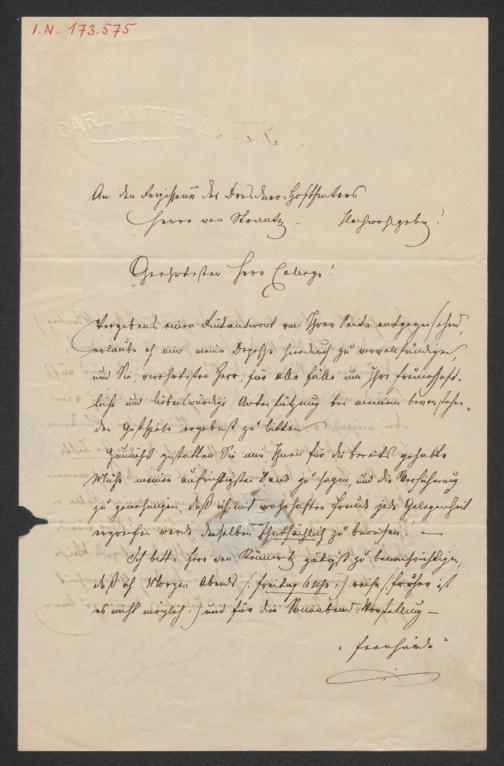 I.N. 173.575
CARL MITTELL
An den Regisseur des Dresdner Hoftheaters
Herrn von Strantz – Hochwohlgeb!
Geehrtester Herr College!
Vergebens einer Antwort von Ihrer Seite entgegen sehend,
erlaube ich mir meine Depesche hierdurch zu vervollständigen,
und Sie, verehrtester Herr, für alle Fälle um Ihre freundschaft-
liche und liebenswürdige Unterstützung bei meinem bevorstehen-
den Gastspiele ergebenst zu bitten.
Zunächst gestatten Sie mir Ihnen für die bereits gehabte
Mühe meinen aufrichtigsten Dank zu sagen, und die Versicherung
zu genehmigen, daß ich mit wahrhafter Freude jede Gelegenheit
ergreifen werde, denselben thatsächlich zu beweisen! –
Ich bitte Herr von Könneritz gütigst zu benachrichtigen,
daß ich Morgen Abends /: Freitag 6 Uhr :/ reise (früher ist
es nicht möglich) und für die Sonnabend Vorstellung –